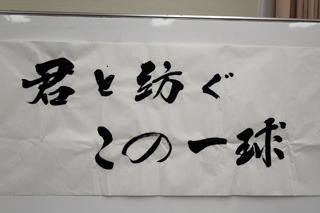 君と紡ぐ
この一球